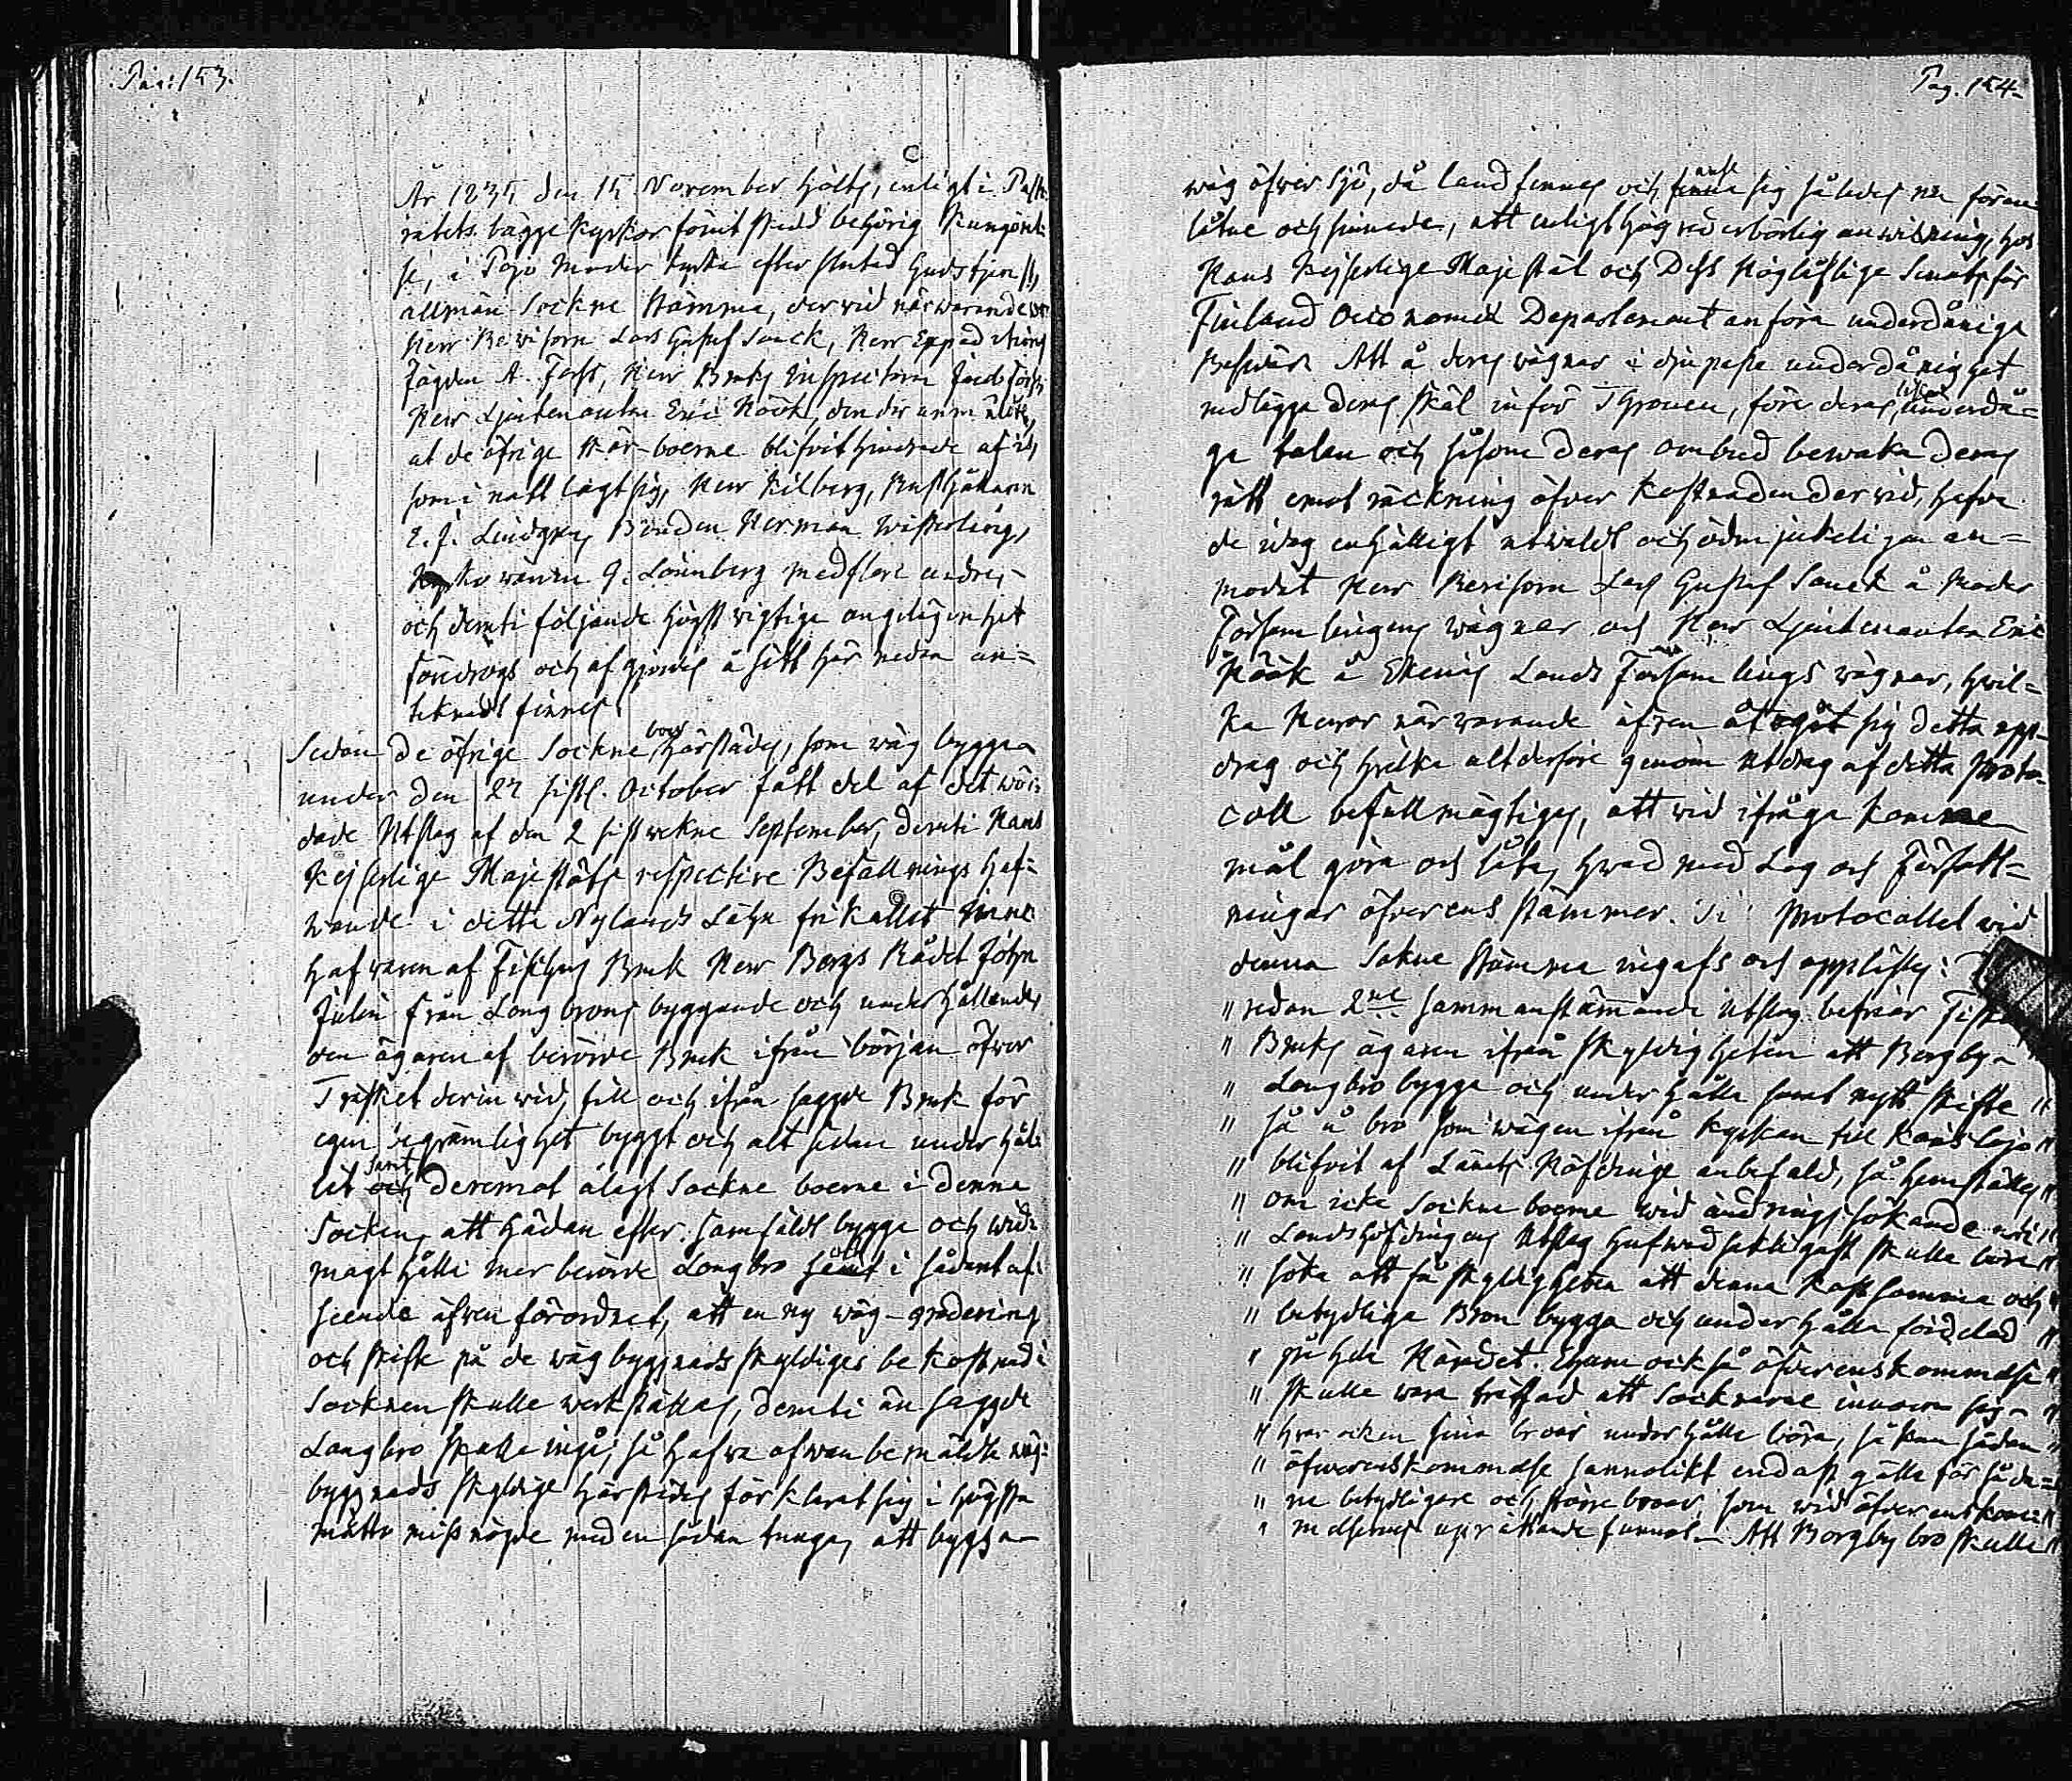 Pag: 153.
År 1835 den 15 November hölts, enligt i Pasto-
ratets bägge Kyrkor förut skedd behörig Kungörel-
se, i Pojo Moder kyrka efter slutad Gudstjenst,
allmän Sockne Stämma, dervid närvarande wo-
Herr Revisorn Lars Gustaf Sanck, Herr Expeditions
Fogden A. Forss, Herr Bruks Inspectorn
Herr Lieutenanten Eric Röök, den der anmälte,
at de öfrige Skär-boerne blifvit hindrade af is,
som i natt lagt sig, Herr Kilberg, Rusthållaren
E. J. Lindgren, Bonden Herman Wisterling,
Kyrkowärden G. Lönnberg med flere andre,
och deruti följande högst wigtige angelägenhet
föredrogs och afgjordes å sätt här nedan an-
teknadt finnes.
Sedan de öfrige Sockne boer härstädes, som wäg bygga
under den 27 sistl. October fått del af det wör-
dade Utslag af den 2 sistvekne September, deruti Hans
Kejserlige Majestäts respective Befallningshaf-
wande i detta Nylands Lähn frikallat Inne
hafvaren af Fiskars Bruk Herr Bergs Rådet John
Julin från Långbrons byggande och underhållande,
den ägaren af berörde Bruk ifrån början öfver
Träsket derinwid, till och ifrån sagde Bruk för
egen beqvämlighet byggt och alt sedan underhål-
lit samt deremot ålagt Sockne boerne i denna
Socken, att hädan efter samfäldt bygga och wid
magt hålla mer berörde Långbro samt i sådant af-
seende äfven förordnat, att en ny wäg-gradering
och skifte på de wäg byggnads skyldiges bekostnad i
Socknen skulle werkställas, deruti än sagde
Långbro skulle ingå; så hafva ofwan bemälte wäg-
byggnads skyldige härstädes förklarat sig i högsta
måtto missnögde med en sådan tunga, att bygga
Pag. 154.
wäg öfver Sjö, då land finnes och sig således nu föran-
låtne och sinnade, att enligt hög wederbörlig anwisning, hos
Hans Kejserlige Majestät och Dess Höglofliga Senats för
Finland Oeconomie Departement anföra underdåniga
Besvär. Att å deras wägnar i djupaste underdånighet
nedlägga deras skäl inför Thronen, före deras underdå-
ga talan och såsom deras ombud bewaka deras
rätt emot räckning öfver kostnaden dervid, hafva
de idag enhälligt utwaldt och ödmjukeligen an-
modat Herr Revisorn Lars Gustaf Sanck å Moder
Församlingens wägnar och Herr Lieutenanten Eric
Röök å Ekenäs Lands Församlings wägnar, hwil-
ka Herrar närvarande äfven åtogo sig detta upp-
drag och hvilka alt derföre genom utdrag af detta Proto-
coll befullmägtigas, att wid ifråga komne
mål göra och låta, hwad med Lag och Författ-
ningar öfverens stämmer. Til Protocollet wid
denna Sokne Stämma ingafs och upplästes:
" redan 2ne sammanstämmande Utslag befriar Fiskars
" Bruks ägaren ifrån skyldigheten att Borgby
" Långbro bygga och underhålla samt nytt skifte "
" så å bro som wägen ifrån Kyrkan till Karis Lojo "
" blifvit af Länets Höfdinge anbefald, så hemställes "
" om icke Sockne boerne wid ändrings sökande uti "
" Landshöfdingens Utslag hufwudsakligast skulle böra "
" söka att få skyldigheten att denna kostsamma och "
" betydliga Bron bygga och underhålla fördelad "
" på hela Häradet. Ehuru också öfverenskommelse "
" skulle wara träffad att Socknarne innom sig "
" hvar och en sina broar underhålla böra, så kan sådan "
" öfverenskommelse sannolikt endast gälla för såda-
" ne betydligare och större broar, som wid öfverenskom- "
" melsernes upprättande funnos. Att Borgby bro skulle "